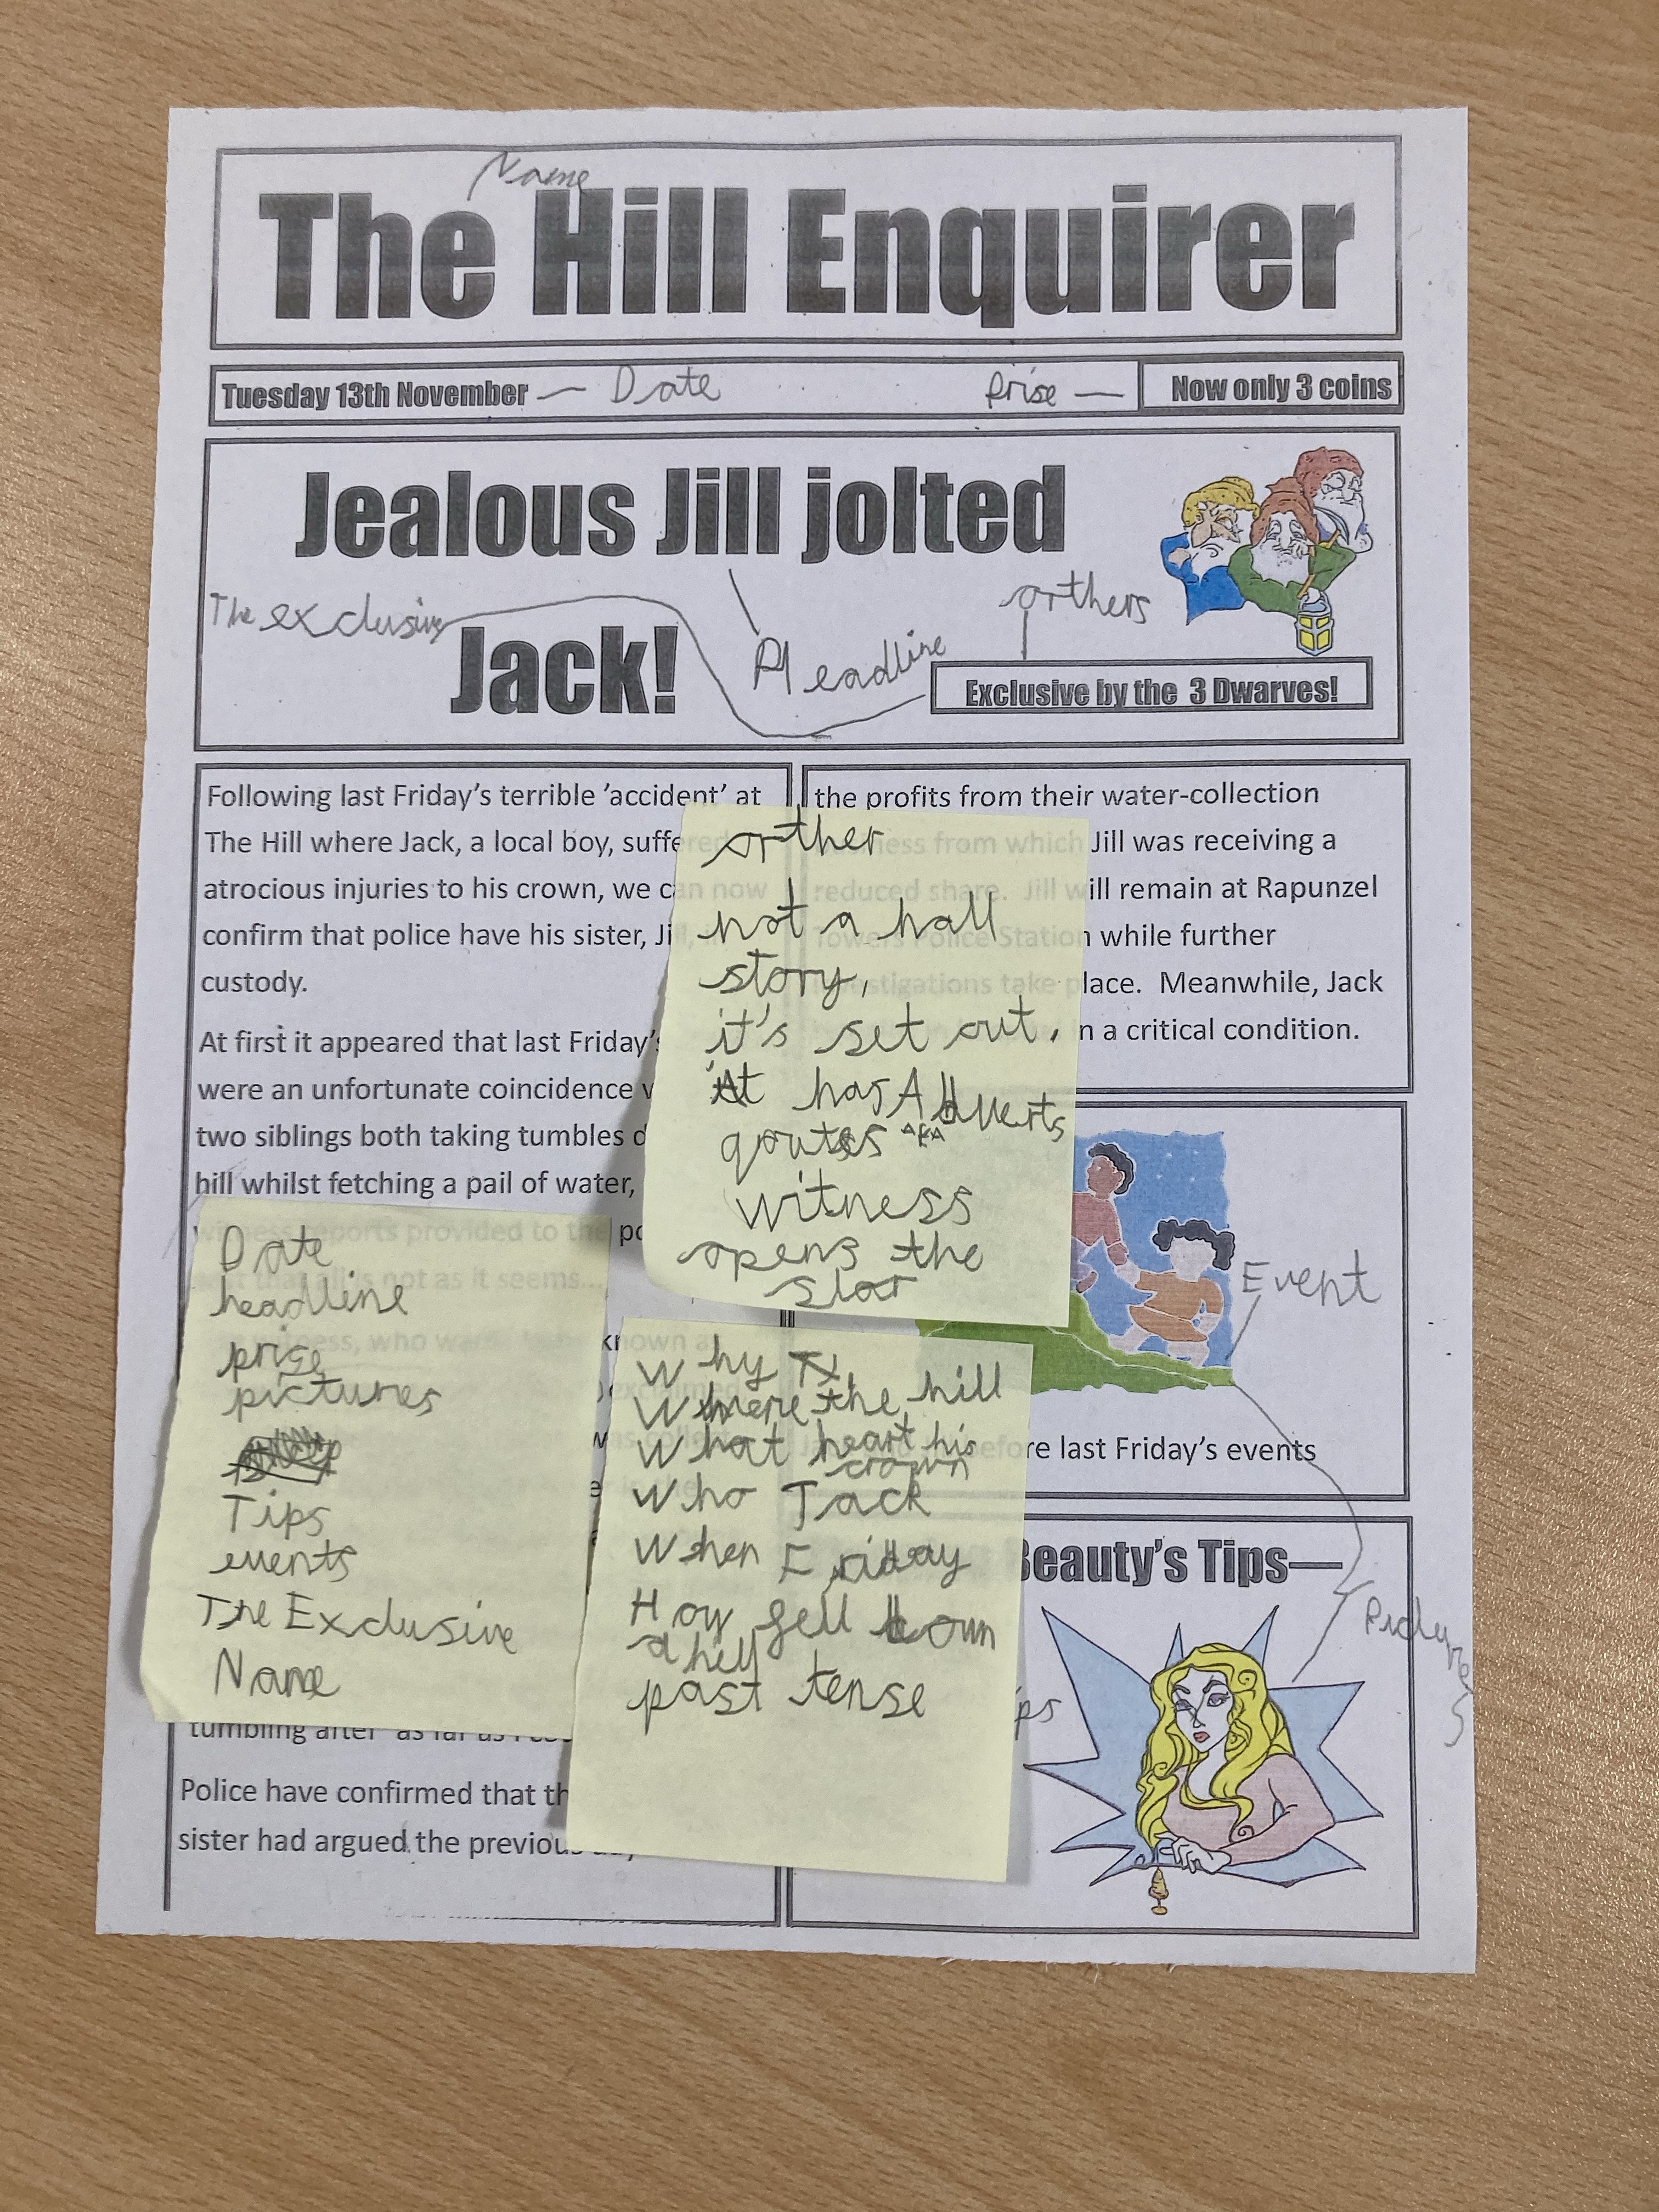 Name
The Hill Enquirer
Tuesday 13th November — Date
Prise — Now only 3 coins
Jealous Jill jolted
Jack!
The exclusive
Headline
orthers
Exclusive by the 3 Dwarves!
Following last Friday's terrible 'accident' at
The Hill where Jack, a local boy, suffered
atrocious injuries to his crown, we can now
confirm that police have his sister, Jill, in
custody.
At first it appeared that last Friday's
were an unfortunate coincidence
two siblings both taking tumbles
hill whilst fetching a pail of water,
witness reports provided to the
that all is not as it seems...
Date
headline
prise
pictures
Tips
events
The Exclusive
Name
tumbling after' as far as
Police have confirmed that
sister had argued the previous
the profits from their water-collection
business from which Jill was receiving a
reduced share. Jill will remain at Rapunzel
Towers Police Station while further
investigations take place. Meanwhile, Jack
in a critical condition.
orther
not a hall
story,
it's set out.
it has Adverts
qoutes AKA
witness
opens the
slot
Event
before last Friday's events
Why
Where the hill
What heart his
crown
Who Jack
When Friday
How fell down
a hill
past tense
Beauty's Tips—